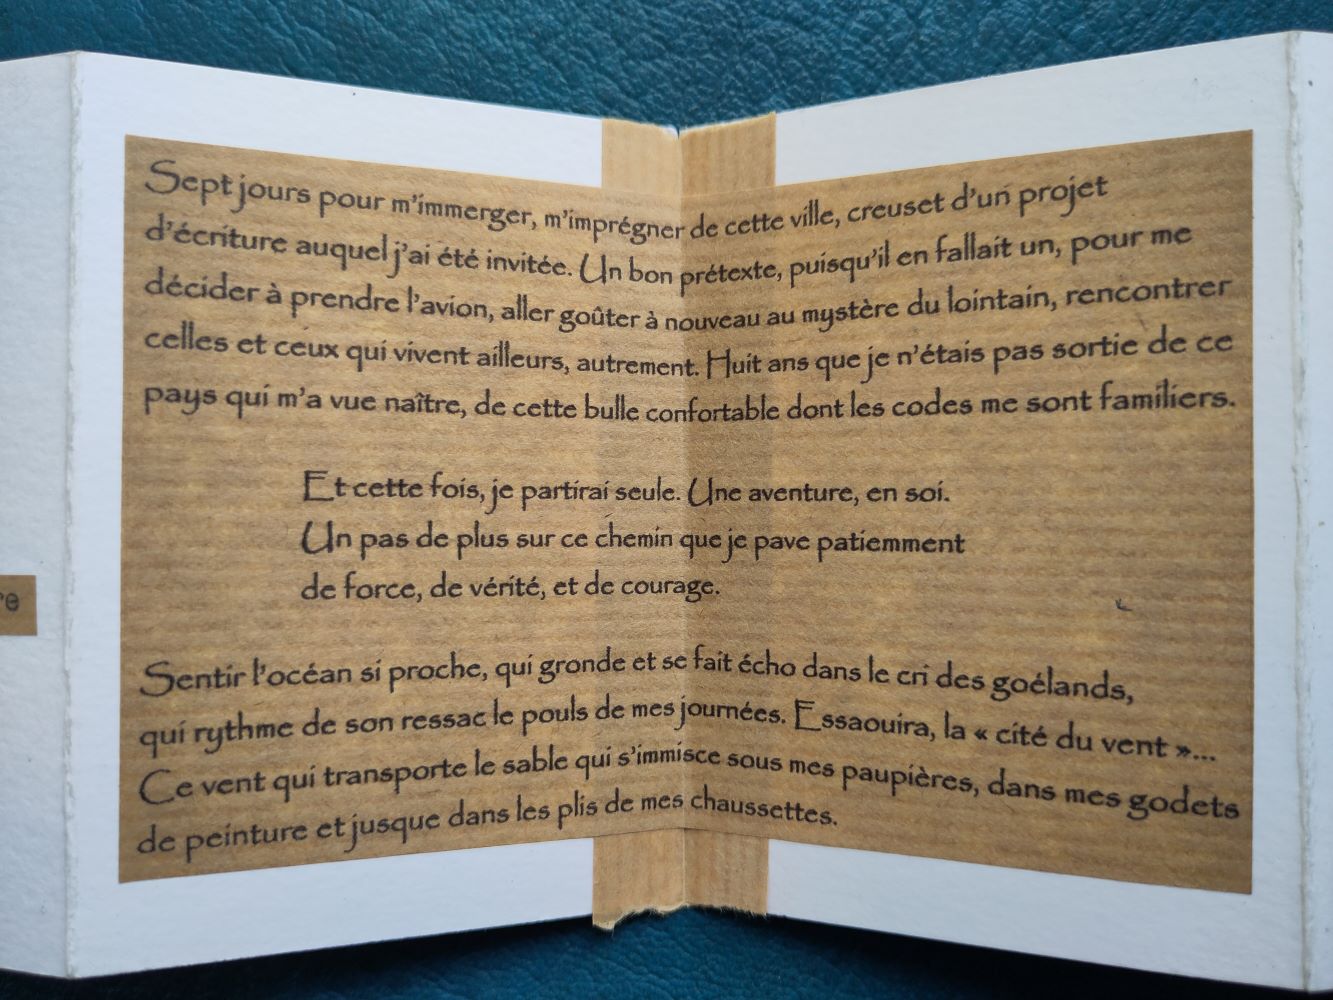 Sept jours pour m'immerger, m'imprégner de cette ville, creuset d'un projet
d'écriture auquel j'ai été invitée. Un bon prétexte, puisqu'il en fallait un, pour me
décider à prendre l'avion, aller goûter à nouveau au mystère du lointain, rencontrer
celles et ceux qui vivent ailleurs, autrement. Huit ans que je n'étais pas sortie de ce
pays qui m'a vue naître, de cette bulle confortable dont les codes me sont familiers.
Et cette fois, je partirai seule. Une aventure, en soi.
Un pas de plus sur ce chemin que je pave patiemment
de force, de vérité, et de courage.
Sentir l'océan si proche, qui gronde et se fait écho dans le cri des goélands,
qui rythme de son ressac le pouls de mes journées. Essaouira, la « cité du vent »...
Ce vent qui transporte le sable qui s'immisce sous mes paupières, dans mes godets
de peinture et jusque dans les plis de mes chaussettes.